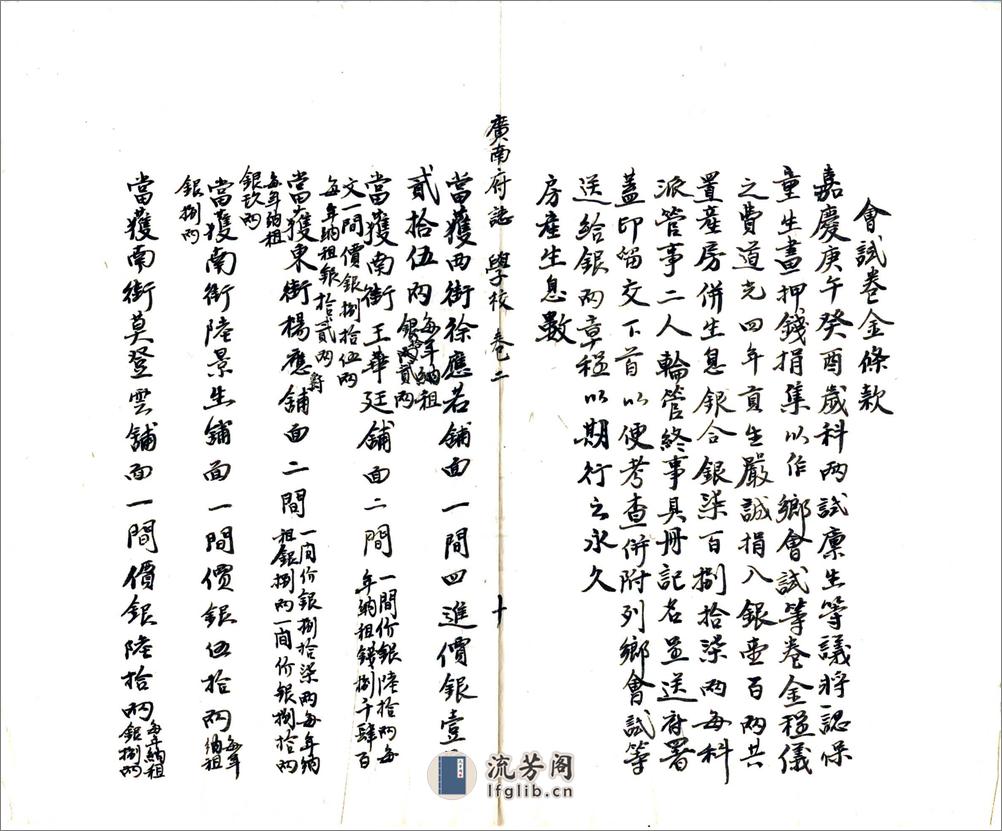 會試卷金條款
嘉慶庚午癸酉歲科兩試廩生等議將認保
童生畫押錢捐集以作鄉會試等卷金程儀
之費道光四年貢生嚴誠捐入銀壹百兩共
置產房併生息銀合銀柒百捌拾柒兩每科
派管事二人輪管終事具冊記名並送府署
蓋印畱交下首以便考查併附列鄉會試等
送給銀兩章程以期行之永久
房產生息數
廣南府誌 學校 卷二 十
當獲西街徐應若舖面一間四進價銀壹
貳拾伍兩每年納租銀貳兩
當獲南街王華廷舖面二間一間价銀陸拾兩每年納租錢捌千肆百
文一間價銀捌拾伍兩每年納租銀拾貳兩
當獲東街楊應舖面二間一间价銀捌拾柒兩每年納租銀捌兩一间价銀捌拾兩
每年納租銀玖兩
當獲南街陸景生舖面一間價銀伍拾兩每年納租
銀捌兩
當獲南街莫登雲舖面一間價銀陸拾兩每年納租銀捌兩
流芳阁
lfglib.cn